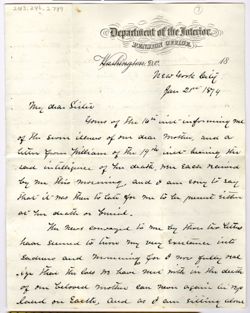 Department of the Interior,
PENSION OFFICE,
Washington, D.C. 18
New York City
Jan 21st 1874
My dear Sister
Yours of the 16th inst informing me
of the severe illness of our dear Mother, and a
letter from William of the 19th inst bearing the
sad intelligence of her death, were each received
by me this morning, and I am sorry to say
that it was then too late for me to be present either
at her death or burial.
The news conveyed to me by these two letters
have seemed to turn my very existence into
sadness and mourning for I now fully real
ize that the loss we have met with in the death
of our beloved mother can never again be re
placed on Earth, and as I am sitting alone